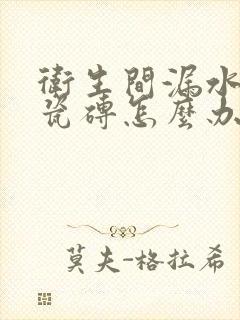 衛生間漏水
瓷磚怎麼办
莫夫-格拉希